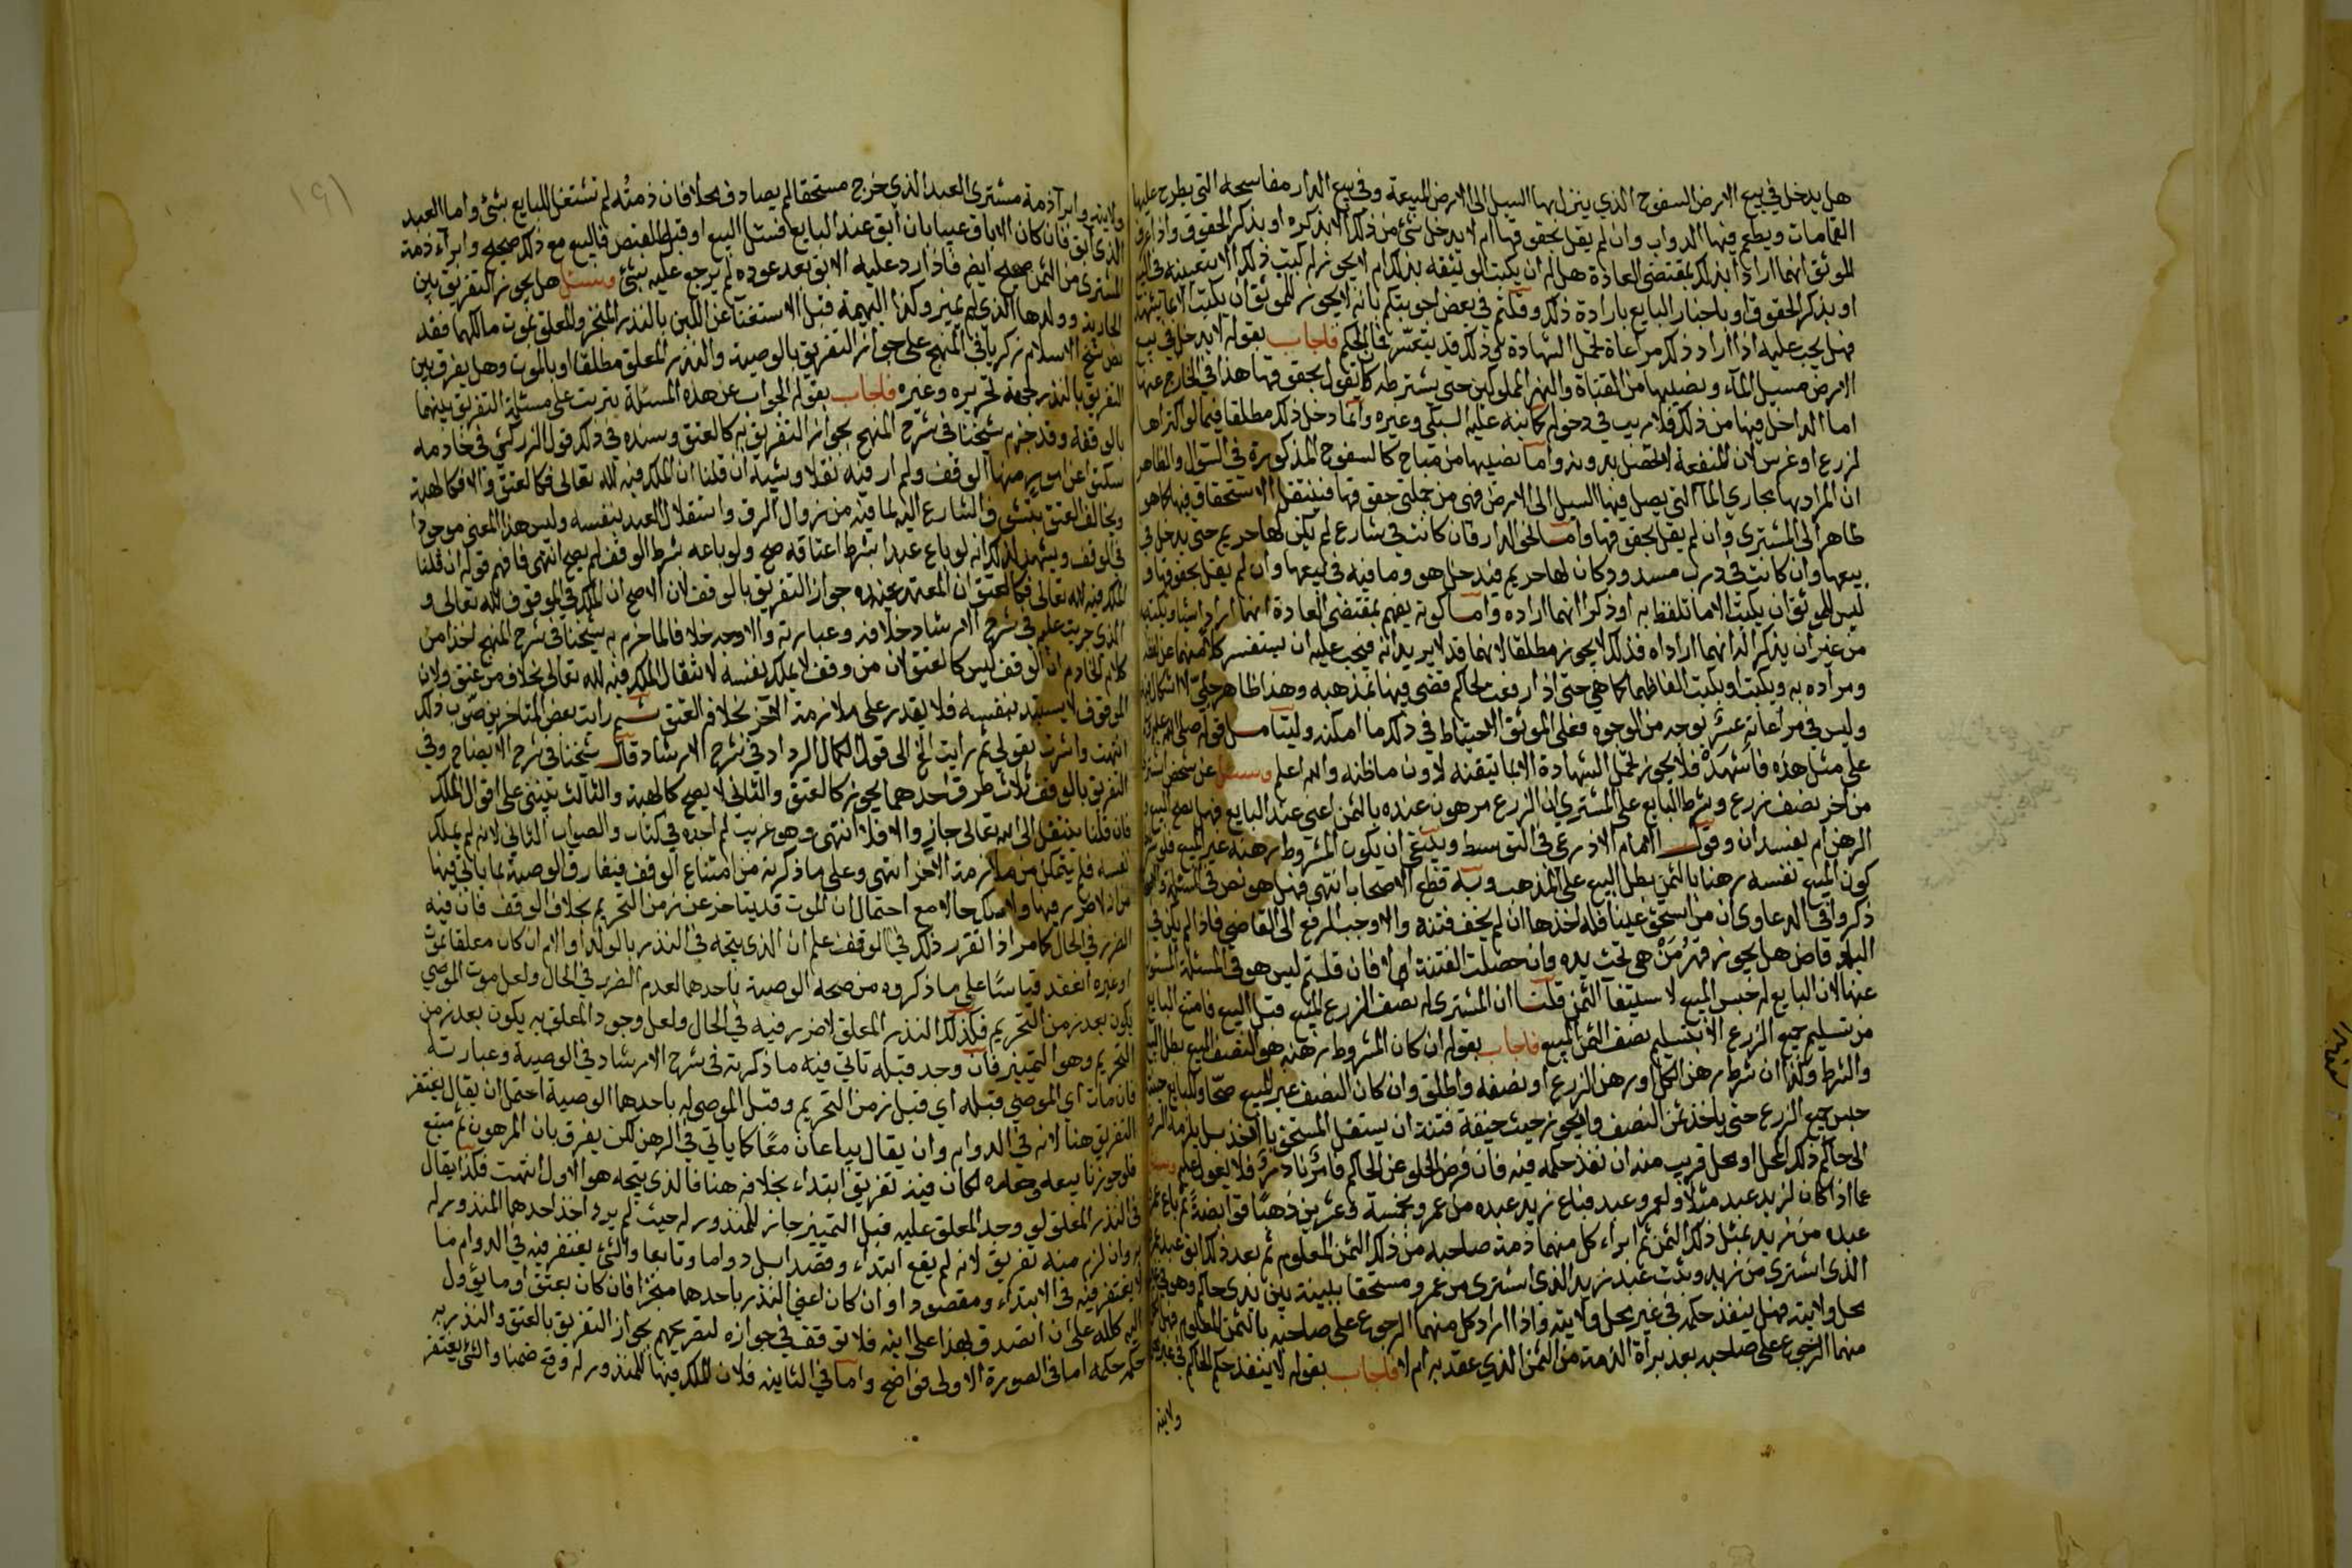 هل يدخل في بيع الارض السفوح الذي ينزل بها السيل الى الارض المبيعة وفي بيع الدار مفاسحه التي يطرح عليها
القمامات ويطعم فيها الدواب وان لم يقل بحقوقها ام لا يدخل شئ من ذلك الا بذكره او بذكر الحقوق واذا عرف
الموثق انهما ارادا بذلك بمقتضى العادة هل له ان يكتب الوثيقة بذلك ام لا يجوز له كتب ذلك الا بتعيينه في البيع
او بذكر الحقوق او باخبار البايع بارادة ذلك وقلتم في بعض اجوبتكم بانه لا يجوز للموثق ان يكتب الا بما يشهد
فهل يجب عليه اذا اراد ذلك مراعاة تحمل الشهادة بل وذلك قد يتعسر فما الحكم فاجاب بقوله لا يدخل في بيع
الارض مسيل الماء ونصيبها من القناة والنهر المملوكين حتى يشترطه كان يقول بحقوقها هذا في الخارج عنها
اما الداخل فيها من ذلك فلا ريب في دخوله كما نبه عليه السبكي وغيره وانما دخل ذلك مطلقا فيما لو اكتراها
لزرع او غرس لان المنفعة لا تحصل بدونه واما نصيبها من مباح كالسفوح المذكورة في السؤال والظاهر
ان المراد بها مجاري الماء التي يصل فيها السيل الى الارض فهي من جملة حقوقها فينتقل الاستحقاق فيها كما هو
ظاهر الى المشتري وان لم يقل بحقوقها واما الدار فان كانت في شارع لم يكن لها حريم حتى يدخل في
بيعها وان كانت في درب مسدود كان لها حريم فيدخل هو وما فيه في بيعها وان لم يقل بحقوقها و
ليس للموثق ان يكتب الا ما تلفظ به او ذكرا انهما اراده واما كونه يفهم بمقتضى العادة انهما ارادا شيئا ويكتبه
من غير ان يذكرا له انهما اراداه فذلك لا يجوز مطلقا لانهما قد لا يريدانه فيجب عليه ان يستفسر كلا منهما عن لفظه
ومراده به ويكتب او يكتب الفاظهما كما هي حتى اذا رفعت لحاكم قضى فيها بمذهبه وهذا ظاهر جلي لا اشكال فيه
وليس في مراعاته عسر بوجه من الوجوه فعلى الموثق الاحتياط في ذلك ما امكنه وليتامل قوله صلى الله عليه وسلم
على مثل هذه فاشهد فلا يجوز تحمل الشهادة الا بما تيقنه لا دون ما ظنه والله اعلم وسئل عن شخص اشترى
من اخر نصف زرع وشرط البايع على المشتري ان الزرع مرهون عنده بالثمن اعني عند البايع فهل يصح البيع و
الرهن ام يفسدان وقول الامام الاذرعي في التوسط وينبغي ان يكون المشروط رهنه غير المبيع فلو شرط
كون المبيع نفسه رهنا بالثمن بطل البيع على المذهب وبه قطع الاصحاب انتهى فهل هو نص في المسئلة
ذكروا في الدعاوى ان من استحق عينا فله اخذها ان لم يخف فتنة والا وجب الرفع الى القاضي فاذا لم يكن في
البلد قاض هل يجوز قهر من هي تحت يده وان حصلت الفتنة ام لا فان قلتم ليس هو في المسئلة المسئول
عنها لان البايع له حبس المبيع لاستيفاء الثمن قلنا ان المشتري له نصف الزرع المبيع قبل البيع فامتنع البايع
من تسليم جميع الزرع الا بتسليم نصف الثمن المبيع فاجاب بقوله ان كان المشروط رهنه هو النصف المبيع بطل البيع
والشرط وكذا ان شرط رهن الكل او رهن الزرع او نصفه واطلق وان كان النصف غير المبيع صحا وللبايع حينئذ
حبس جميع الزرع حتى ياخذ ثمن النصف ولا يجوز حيث خيفة فتنة ان يستقل المستحق بالاخذ بل يلزمه الرفع
الى حاكم ذلك المحل او محل قريب منه ان نفذ حكمه فيه فان فرض الخلو عن الحاكم فامرنا درء فلا يعول عليه وسئل
عما اذا كان لزيد عبد مثلا ولعمرو عبد فباع زيد عبده من عمرو بخمسة وعشرين ذهبا قوا بضة ثم باع عمرو
عبده من زيد بمثل ذلك الثمن ثم ابراء كل منهما ذمة صاحبه من ذلك الثمن المعلوم ثم بعد ذلك ابق عبد عمرو
الذي اشتري من زيد وبثت عبد زيد الذي اشترى من عمرو مستحقا ببينة بين يدي حاكم وهو في غير
محل ولايته فهل ينفذ حكمه في غير محل ولايته واذا اراد كل منهما الرجوع على صاحبه بالثمن المعلوم فهل لكل
منهما الرجوع على صاحبه بعد براة الذمة من الثمن الذي عقد به ام لا فاجاب بقوله لا ينفذ حكم الحاكم في غير محل
ولايته
ولايته وابرا ذمة مشترى العبد الذي خرج مستحقا لم يصادف محلا فان ذمته لم تشتغل للبايع بشئ واما العبد
الذي ابق فان كان الاباق عيبا بان ابق عند البايع قبل البيع او قبل القبض فالبيع مع ذلك صحيح وابراء ذمة
المشتري من الثمن صحيح ايضا فاذا رد عليه الابق بعد عوده لم يرجع عليه بشئ وسئل هل يجوز التفريق بين
الجارية وولدها الذي لم يميز وكذا البهيمة قبل الاستغناء عن اللبن بالنذر المنجز والمعلق بموت مالكها فقد
نص شيخ الاسلام زكريا في المنهج على جواز التفريق بالوصية والنذر المعلق مطلقا او بالموت وهل يفرق بين
التفريق بالنذر لحجة تحريره وغيره فاجاب بقوله الجواب عن هذه المسئلة يترتب على مسئلة التفريق بينهما
بالوقف وقد جزم شيخنا في شرح المنهج بجواز التفريق به كالعتق وسنده في ذلك قول الزركشي في خادمه
سكتوا عن امور منها الوقف ولم ار فيه نقلا ويشبه ان قلنا ان الملك فيه لله تعالى فكالعتق والا فكالهبة
ويخالف العتق بتشوف الشارع اليه لما فيه من زوال الرق واستقلال العبد بنفسه وليس هذا المعنى موجودا
في الوقف ويشهد لذلك انه لو باع عبدا بشرط اعتاقه صح ولو باعه بشرط الوقف لم يصح انتهى فافهم قوله ان قلنا
الملك فيه لله تعالى فكالعتق ان المعتمد عنده جواز التفريق بالوقف لان الاصح ان الملك في الموقوف لله تعالى و
الذي جريت عليه في شرح الارشاد خلافه وعبارته والاوجه خلافا لما جزم به شيخنا في شرح المنهج اخذا من
كلام الخادم ان الوقف ليس كالعتق لان من وقف لا يملك نفسه لانتقال الملك فيه لله تعالى بخلاف من عتق ولان
الموقوف لا يستبد بنفسه فلا يقدر على ملازمة الاخر بخلاف العتق ثم رايت بعض المتاخرين صوب ذلك
انتهت واشرت بقولي ثم رايت الخ الى قول الكمال الرداد في شرح الارشاد قال شيخنا في شرح الايضاح وفي
التفريق بالوقف ثلاث طرق احدهما يجوز كالعتق والثاني لا يصح كالهبة والثالث ينبني على اقوال الملك
فان قلنا ينتقل الى الله تعالى جاز والا فلا انتهى وهو غريب لم اجده في كتاب والصواب الثاني لانه لم يملك
نفسه فلم يتمكن من ملازمة الاخر انتهى وعلى ما ذكرته من امتناع الوقف فيفارق الوصية بما ياتي فيها
من ان لا ضرر فيها ولا ملك حالا مع احتمال ان الموت قد يتاخر عن زمن التحريم بخلاف الوقف فان فيه
الضرر في الحال كما مر اذا تقرر ذلك في الوقف علم ان الذي يتجه في النذر بالولد او الام ان كان معلقا بموت
او غيره انعقد قياسا على ما ذكروه من صحة الوصية باحدهما لعدم الضرر في الحال ولعل موت الموصي
يكون بعد زمن التحريم فكذلك النذر المعلق لا ضرر فيه في الحال ولعل وجود المعلق به يكون بعد زمن
التحريم وهو التمييز فان وجد قبله تاتي فيه ما ذكرته في شرح الارشاد في الوصية وعبارته
فان مات اي الموصي قبله اي قبل زمن التحريم وقبل الموصى له باحدهما الوصية احتمل ان يقال يغتفر
التفريق هنا لانه في الدوام وان يقال يباعان معا كما ياتي في الرهن لكن يفرق بان المرهون ثم متبع
فلو جوزنا بيعه وحده لكان فيه تفريق ابتداء بخلافه هنا فالذي يتجه هو الاول انتهت فكذا يقال
في النذر المعلق لو وجد المعلق عليه قبل التمييز جاز للمنذور له حيث لم يرد اخذ احدهما المنذور له
به وان لزم منه تفريق لانه لم يقع ابتداء وقصدا بل دواما وتابعا والشئ يغتفر فيه في الدوام ما
لا يغتفر فيه في الابتداء ومقصودا وان كان اعني النذر باحدهما منجزا فان كان بعتق او ما يؤول
اليه كلله علي ان اتصدق بهذا على ابنه فلا توقف في جوازه لتصريحهم بجواز التفريق بالعتق والنذر به
حكمه حكمه اما في الصورة الاولى فواضح واما في الثانية فلان الملك فيها للمنذور له وقع ضمنا والشئ يغتفر